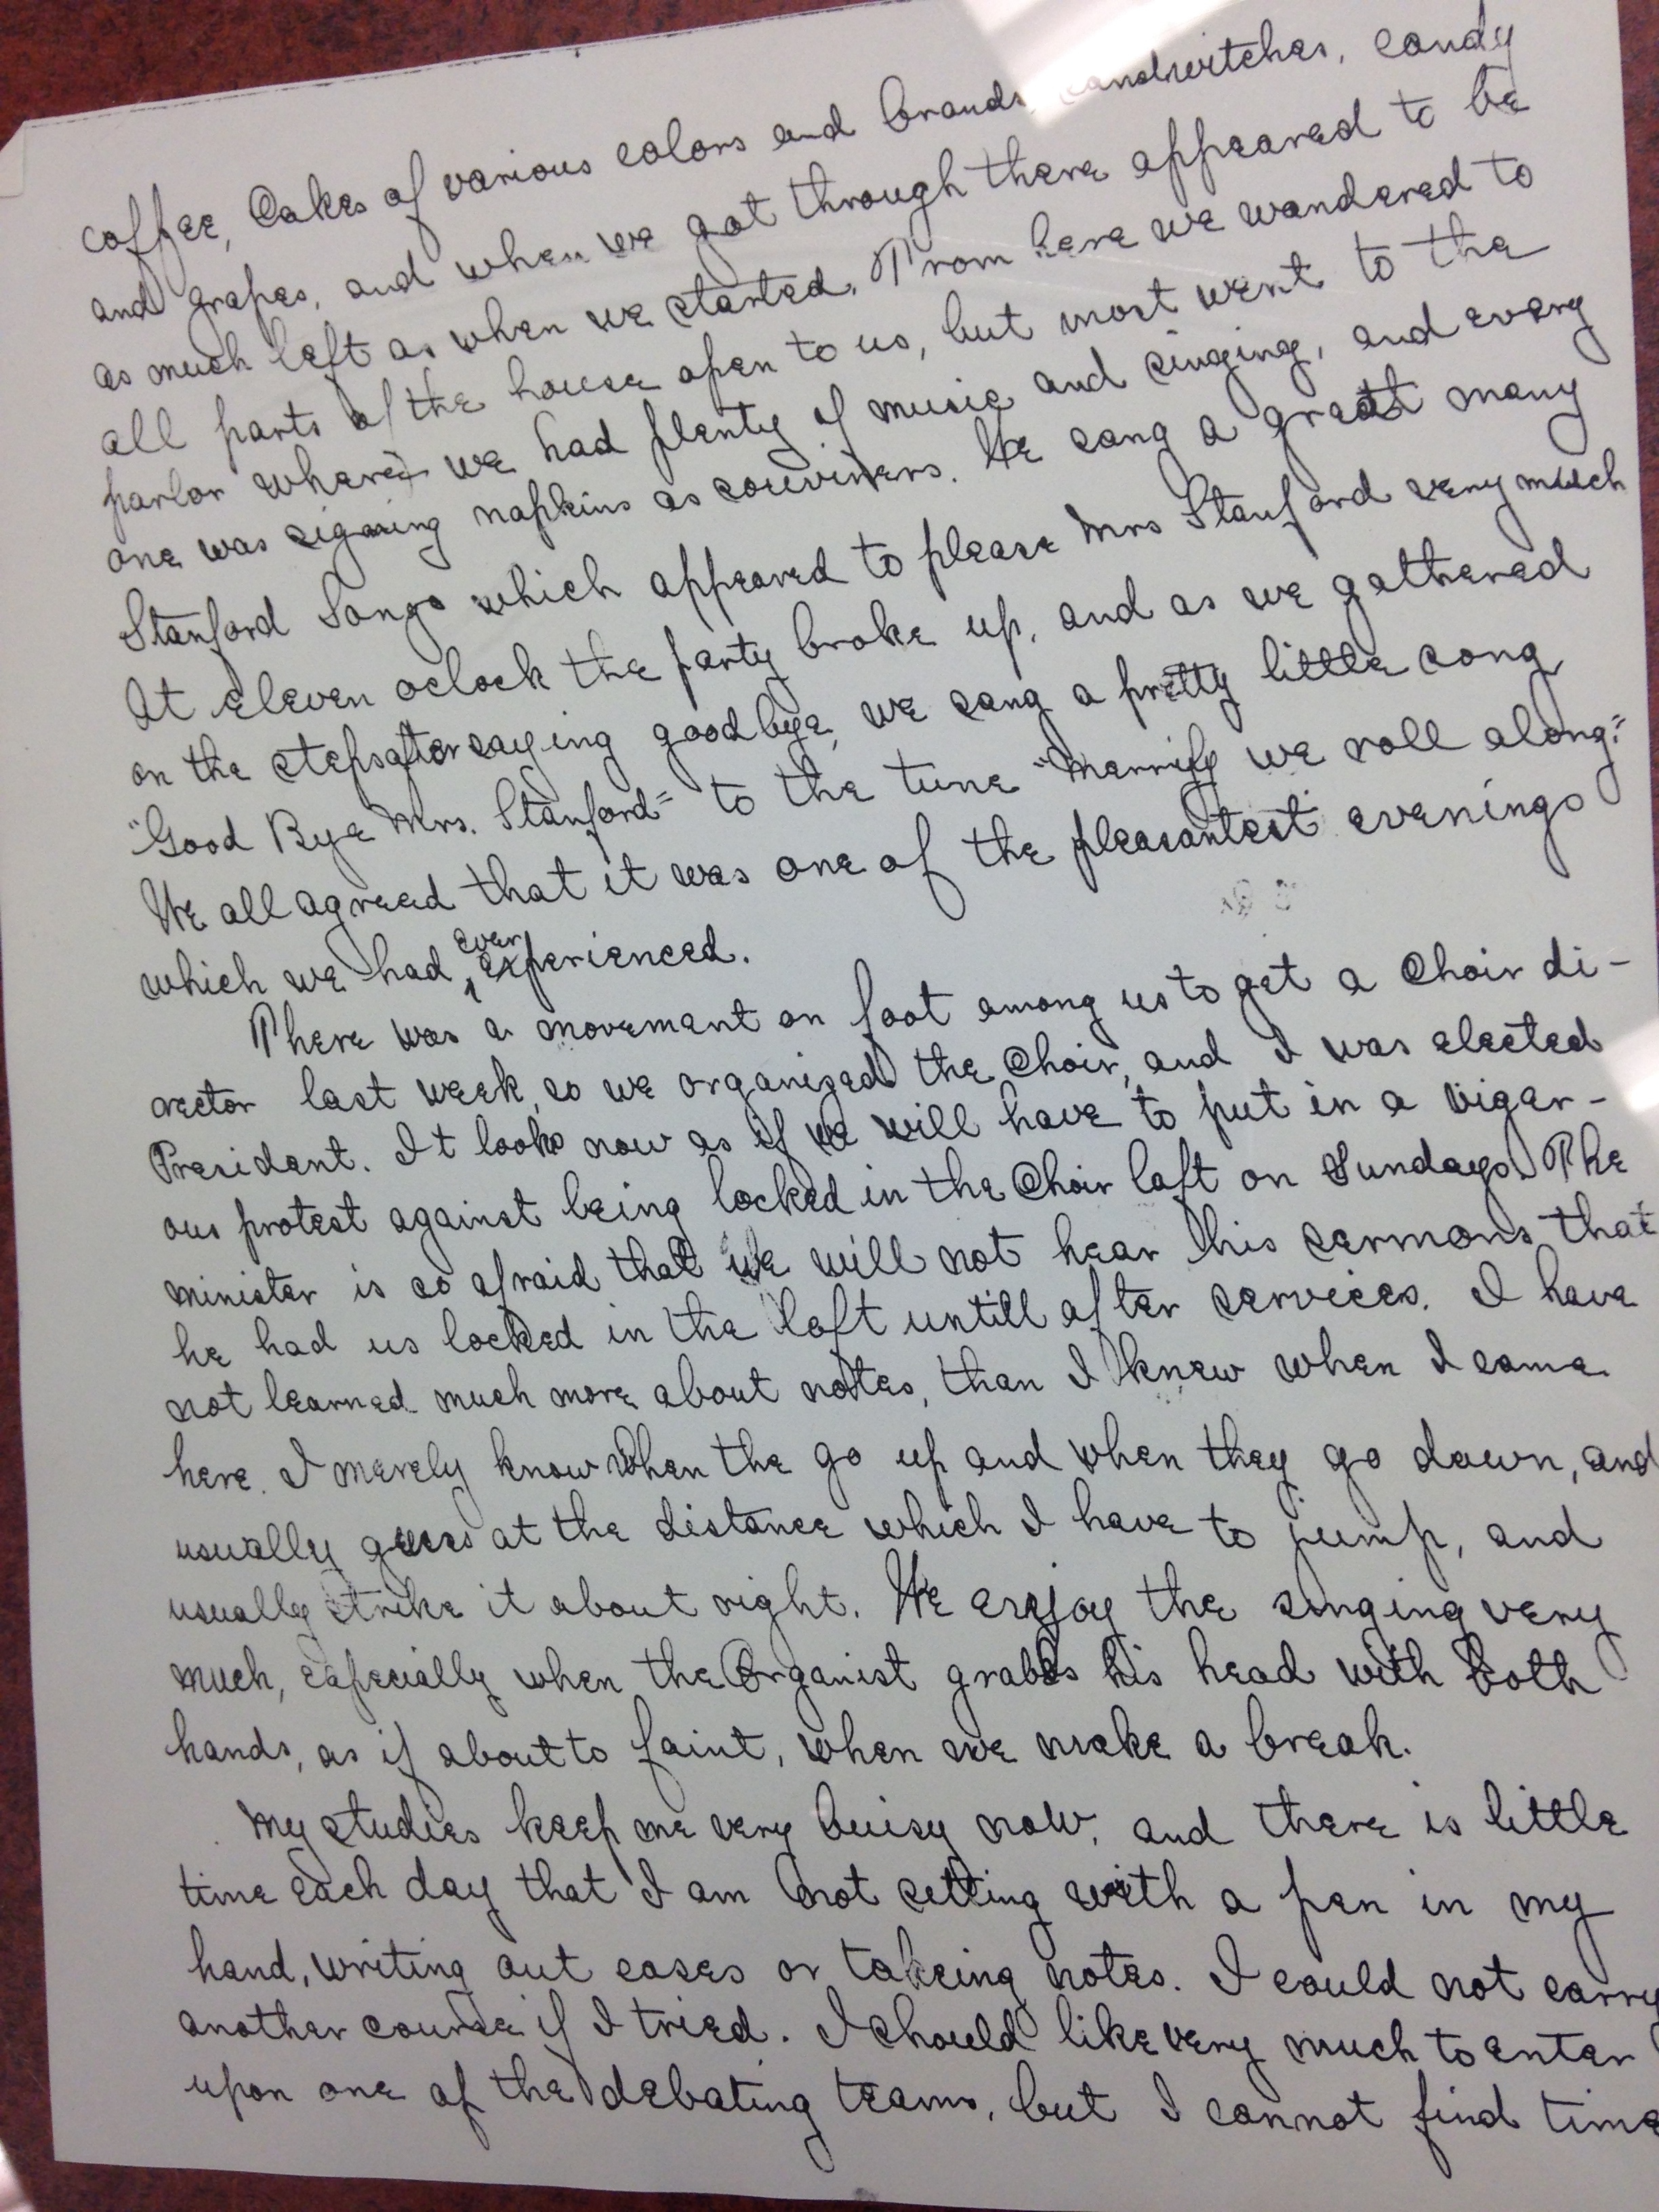 coffee, Cakes of various colors and brands, sandwitches, candy
and grapes, and when we got through there appeared to be
as much left as when we started. From here we wandered to
all parts of the house open to us, but most went to the
parlor where we had plenty of music and singing, and every
one was signing napkins as souviners. We sang a great many
Stanford Songs which appeared to please Mrs Stanford very much
At eleven oclock the party broke up, and as we gathered
on the steps after saying goodbye, we sang a pretty little song
"Good Bye Mrs. Stanford" to the tune "Merrily we roll along."
We all agreed that it was one of the pleasantest evenings
which we had ever experienced.
There was a movement on foot among us to get a Choir di-
rector last week, so we organized the Choir, and I was elected
President. It looks now as if we will have to put in a vigor-
ous protest against being locked in the Choir loft on Sundays. The
minister is so afraid that we will not hear his sermons that
he had us locked in the loft untill after services. I have
not learned much more about notes, than I knew when I came
here. I merely know when the go up and when they go down, and
usually guess at the distance which I have to jump, and
usually strike it about right. We enjoy the singing very
much, especially when the Organist grabs his head with both
hands, as if about to faint, when we make a break.
My studies keep me very buisy now, and there is little
time each day that I am not setting with a pen in my
hand, writing out cases or takeing notes. I could not carry
another course if I tried. I should like very much to enter
upon one of the debating teams, but I cannot find time